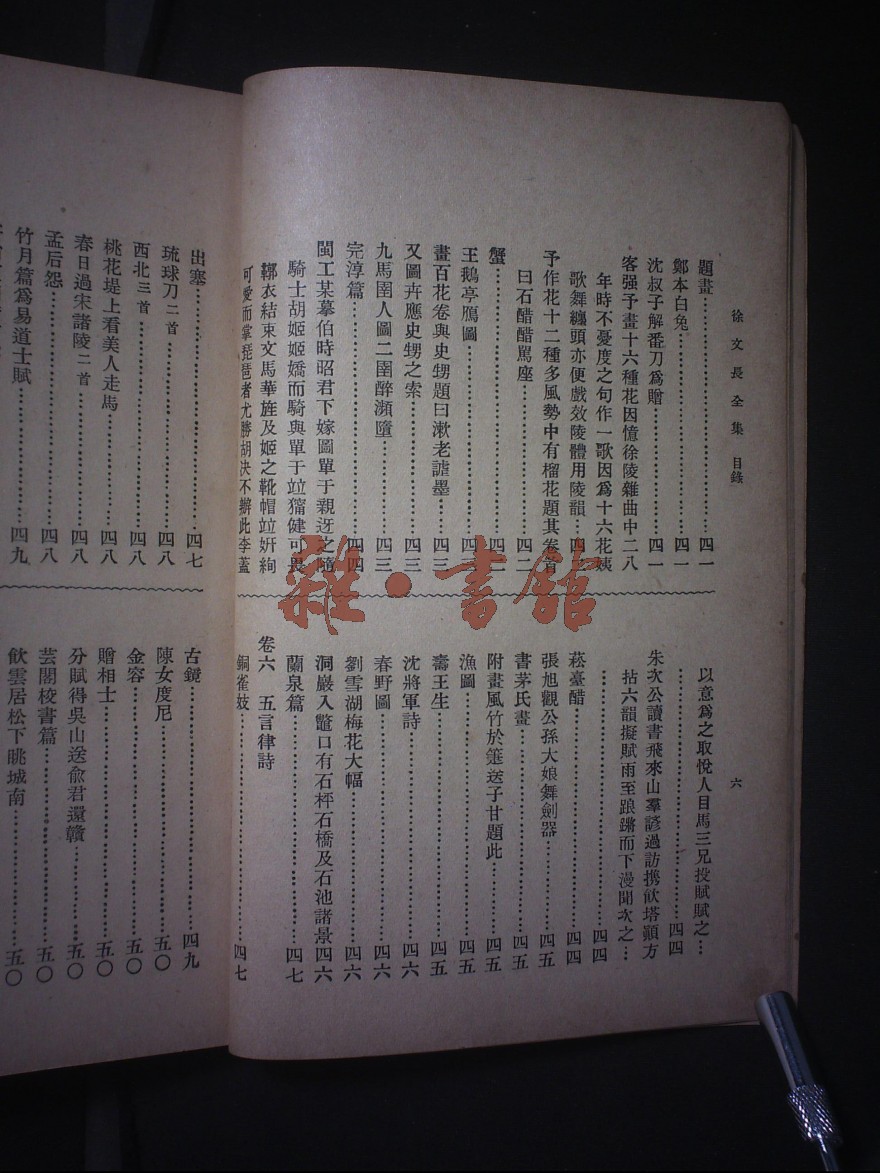 徐文長全集 目錄
六
題畫……四一
鄭本白兔……四一
沈叔子解番刀爲贈……四一
客强予畫十六種花因憶徐陵雜曲中二八
年時不憂度之句作一歌因爲十六花姨
歌舞纏頭亦便戲效陵體用陵韻……四一
予作花十二種多風勢中有榴花題其卷首
曰石醋醋罵座……四二
蟹……四三
王鵝亭鴈圖……四三
畫百花卷與史甥題曰漱老謔墨……四三
又圖卉應史甥之索……四三
九馬圉人圖二圉醉瀕墮……四三
完淳篇……四四
閩工某摹伯時昭君下嫁圖單于親迓之隨
騎士胡姬姬嬌而騎與單于竝獵健可畏
鞹衣結束文馬華旌及姬之靴帽竝妍絢
可愛而掌琵琶者尤勝胡決不辦此李蓋
以意爲之取悅人目馬三兄投賦賦之…
……四四
朱次公讀書飛來山羣諺過訪携飮塔顚方
拈六韻擬賦雨至踉蹡而下漫聞次之…
……四四
菘臺醋……四四
張旭觀公孫大娘舞劍器……四五
書茅氏畫……四五
附畫風竹於箑送子甘題此……四五
漁圖……四五
壽王生……四五
沈將軍詩……四六
春野圖……四六
劉雪湖梅花大幅……四六
洞巖入鼈口有石枰石橋及石池諸景四六
蘭泉篇……四七
卷六 五言律詩
銅雀妓……四七
出塞……四七
琉球刀二首……四八
西北三首……四八
桃花堤上看美人走馬……四八
春日過宋諸陵二首……四八
孟后怨……四八
竹月篇爲易道士賦……四九
古鏡……四九
陳女度尼……五〇
金容……五〇
贈相士……五〇
分賦得吳山送兪君還贛……五〇
芸閣校書篇……五〇
飮雲居松下眺城南……五〇
雜·書館